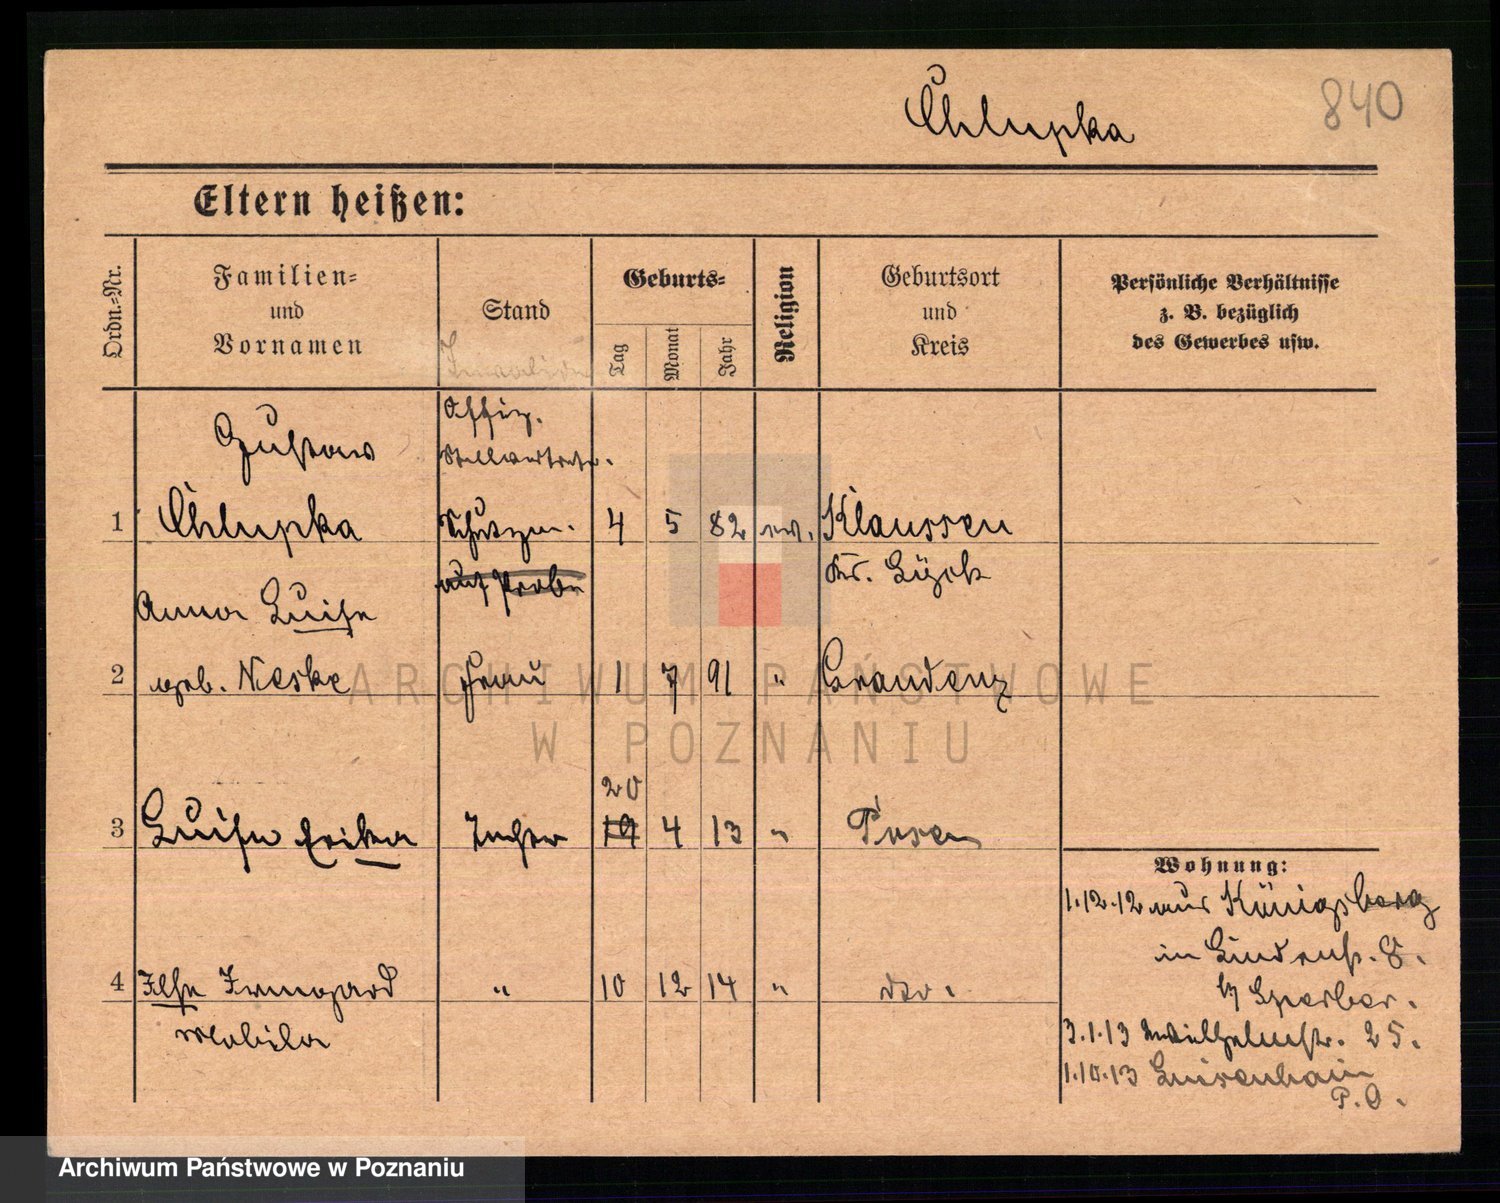 Chlupka
840
Eltern heißen:
Ordn.-Nr.
Familien-
und
Vornamen
Stand
Invalide
Geburts-
Tag
Monat
Jahr
Religion
Geburtsort
und
Kreis
Persönliche Verhältnisse
z. B. bezüglich
des Gewerbes usw.
Gustav
Offiz.
Stellvertreter.
1 Chlupka Schutzm. 4 5 82 ev. Klaussen
auf Probe
Kr. Lyck
Anna Luise
2 geb. Nieske Frau 1 7 91 " Graudenz
20
3 Luise Erika Tochter 19 4 13 " Posen
Wohnung:
1.12.12 aus Königsberg
in Lindenstr. 8.
b/ Sperber.
4 Ilse Irmgard " 10 12 14 " dto.
3.1.13 Wilhelmstr. 25.
1.10.13 Luisenhain
P. O.
ARCHIWUM PAŃSTWOWE
W POZNANIU
Archiwum Państwowe w Poznaniu